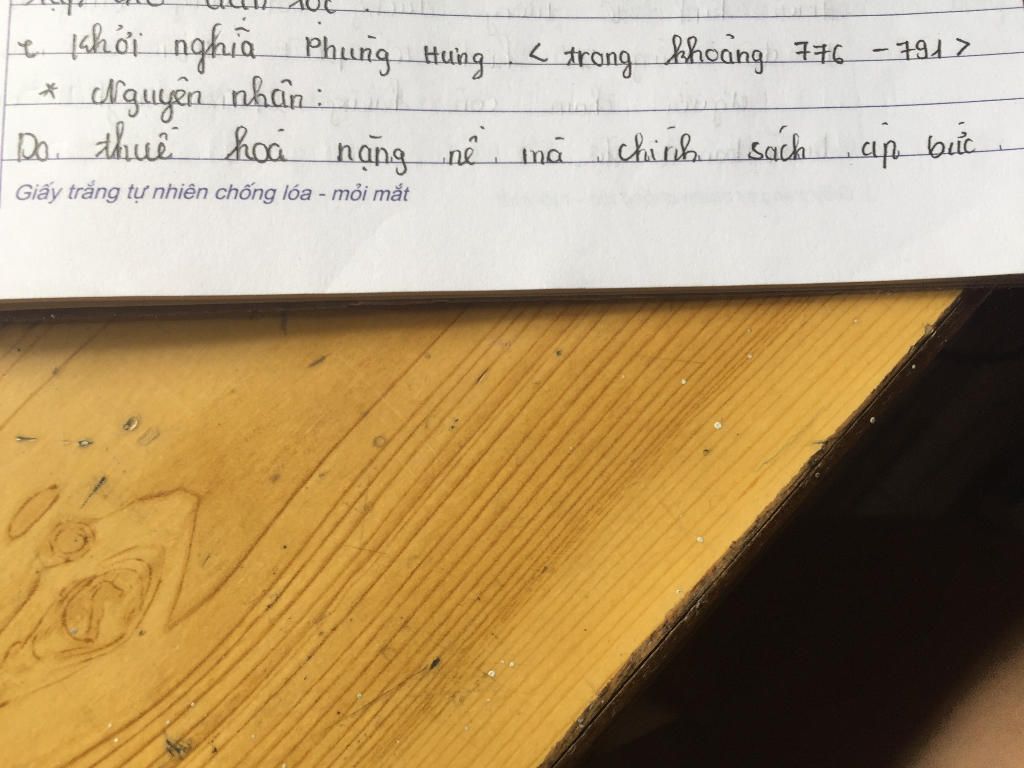 dân tộc.
e. Khởi nghĩa Phùng Hưng. < trong khoảng 776 - 791>
* Nguyên nhân:
Do. thuế hoá nặng nề. mà chính sách áp bức.
Giấy trắng tự nhiên chống lóa - mỏi mắt